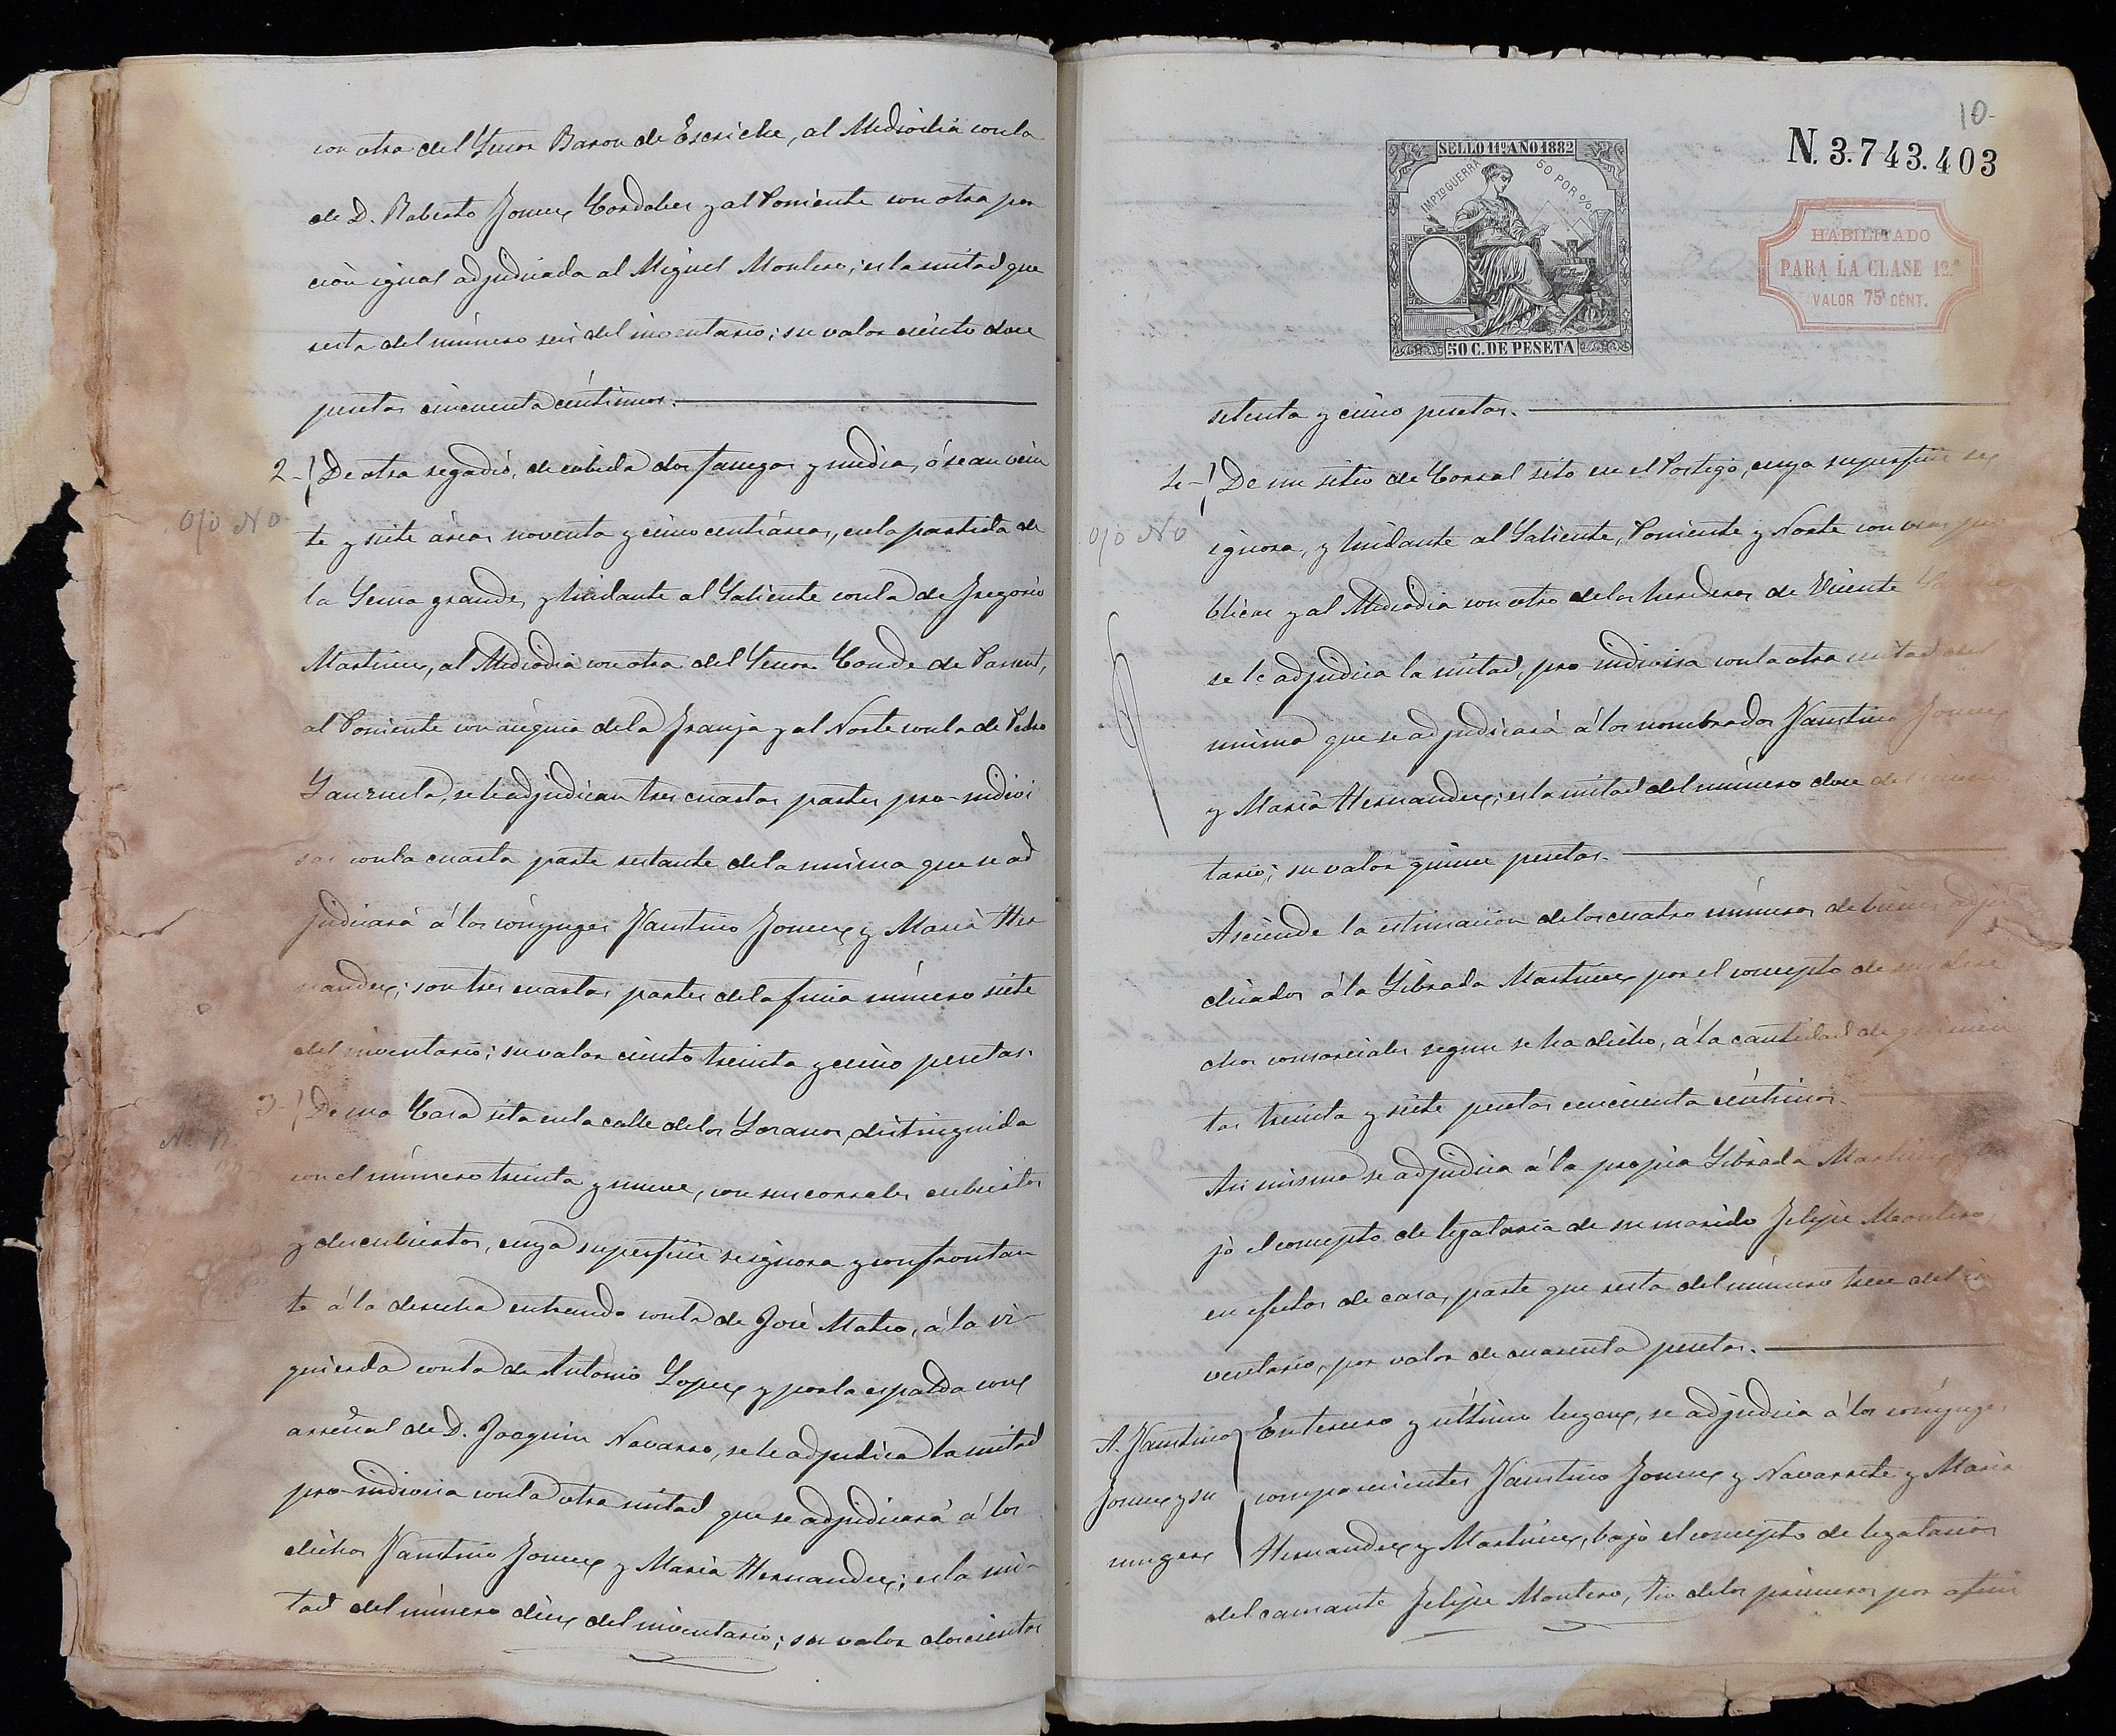 con otra del Señor Baron de Escriche, al Mediodia con la
de D. Roberto Gomez Cordobes y al Poniente con otra por
cion igual adjudicada al Miguel Montero; es la mitad que
resta del número seis del inventario; su valor ciento doce
pesetas cincuenta céntimos.
2-) De otra regadío, de cabida dos fanegas y media, ó sean vein
O/o No
te y siete áreas noventa y cinco centiáreas, en la partida de
la Serna grande, y lindante al Saliente con la de Gregorio
Martinez, al Mediodia con otra del Señor Conde de Parsent,
al Poniente con acequia de la Granja y al Norte con la de Pedro
se le adjudican tres cuartas partes pro-indivi
sas con la cuarta parte restante de la misma que se ad
judicará á los cónyuges Faustino Gomez y Maria Her
nandez; son tres cuartas partes de la finca número siete
del inventario; su valor ciento treinta y cinco pesetas.
3-) De una Casa sita en la calle de los Loranos, distinguida
con el número treinta y nueve, con sus corrales cubiertos
y descubiertos, cuya superficie se ignora y confrontan
te á la derecha entrando con la de José Mateo, á la iz-
quierda con la de Antonio Lopez y por la espalda con
arrenal de D. Joaquin Navarro, se le adjudica la mitad
pro-indivisa con la otra mitad que se adjudicará á los
dichos Faustino Gomez y Maria Hernandez; es la mi-
tad del número diez del inventario; su valor doscientas
10-
N. 3.743.403
SELLO 11º AÑO 1882
IMPTO GUERRA 50 POR %
50 C. DE PESETA
HABILITADO
PARA LA CLASE 12.ª
VALOR 75 CÉNT.
setenta y cinco pesetas.
4-) De un sitio de Corral sito en el Postigo, cuya superficie se
O/o No
ignora, y lindante al Saliente, Poniente y Norte con vias pú
blicas y al Mediodia con otro de los herederos de Vicente
se le adjudica la mitad, pro-indivisa con la otra mitad del
mismo que se adjudicará á los nombrados Faustino Gomez
y Maria Hernandez; es la mitad del número doce del inven
tario; su valor quince pesetas.
Asciende la estimacion de los cuatro números de bienes adju
dicados á la Librada Martinez por el concepto de sus dere
chos consorciales segun se ha dicho, á la cantidad de quinien
tas treinta y siete pesetas cincuenta céntimos.
Asi mismo se adjudica á la propia Librada Martinez, ba
jo el concepto de legataria de su marido Felipe Montero,
en efectos de casa, parte que resta del número trece del in
ventario, por valor de cuarenta pesetas.
A. Faustino Gomez y su muger
En tercero y último lugar, se adjudica á los cónyuges
comparecientes Faustino Gomez y Navarrete y Maria
Hernandez y Martinez, bajo el concepto de legatarios
del causante Felipe Montero, tio de los primeros por afini